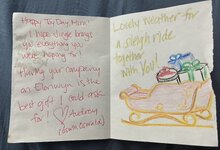 Happy Toy Day Mom!
I hope Jingle brings
you everything you
were hoping for!
Having you camping
on Elanwyn is the
best gift I could ask
for! Audrey
Lovely weather for
a sleigh ride
together
with You!